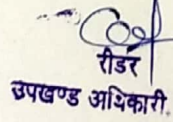 रीडर
उपखण्ड अधिकारी